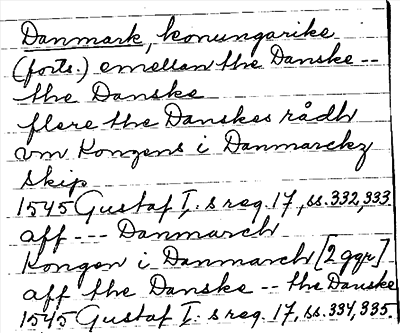 Danmark, konungarike
(forts.) emellan the Danske --
the Danske
flere the Danskes rådh
vm Kongens i Danmarckz
skip
1545 Gustaf I:s reg. 17, ss. 332, 333
aff --- Danmarch
Kongen i Danmarch [2 ggr]
aff the Danske -- the Danske
1545 Gustaf I:s reg. 17, ss. 334, 335.